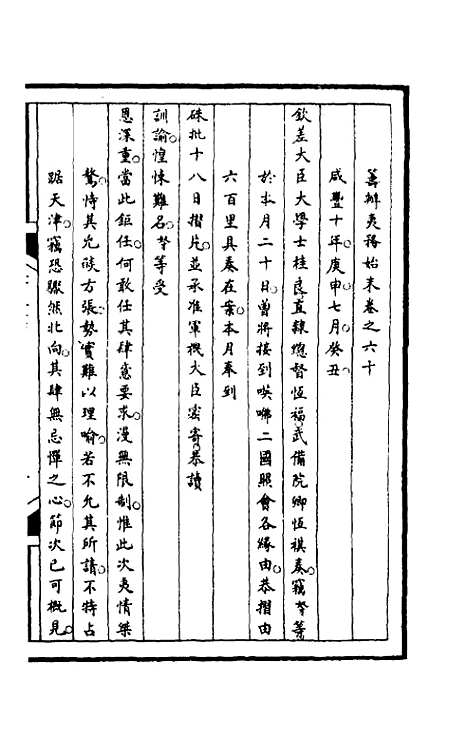 籌辦夷務始末卷之六十
咸豐十年庚申七月癸丑
欽差大臣大學士桂良直隸總督恆福武備院卿恆祺奏。竊奴等
於本月二十日。曾將接到𠸄咈二國照會各緣由。恭摺由
六百里具奏在案。本月奉到
硃批十八日摺片。並承准軍機大臣密寄。恭讀
訓諭。惶悚難名。奴等受
恩深重。當此鉅任。何敢任其肆意要求。漫無限制。惟此次夷情桀
驁。恃其兇燄方張。勢實難以理喻。若不允其所請。不特占
踞天津。竊恐驟然北向。其肆無忌憚之心。節次已可概見。